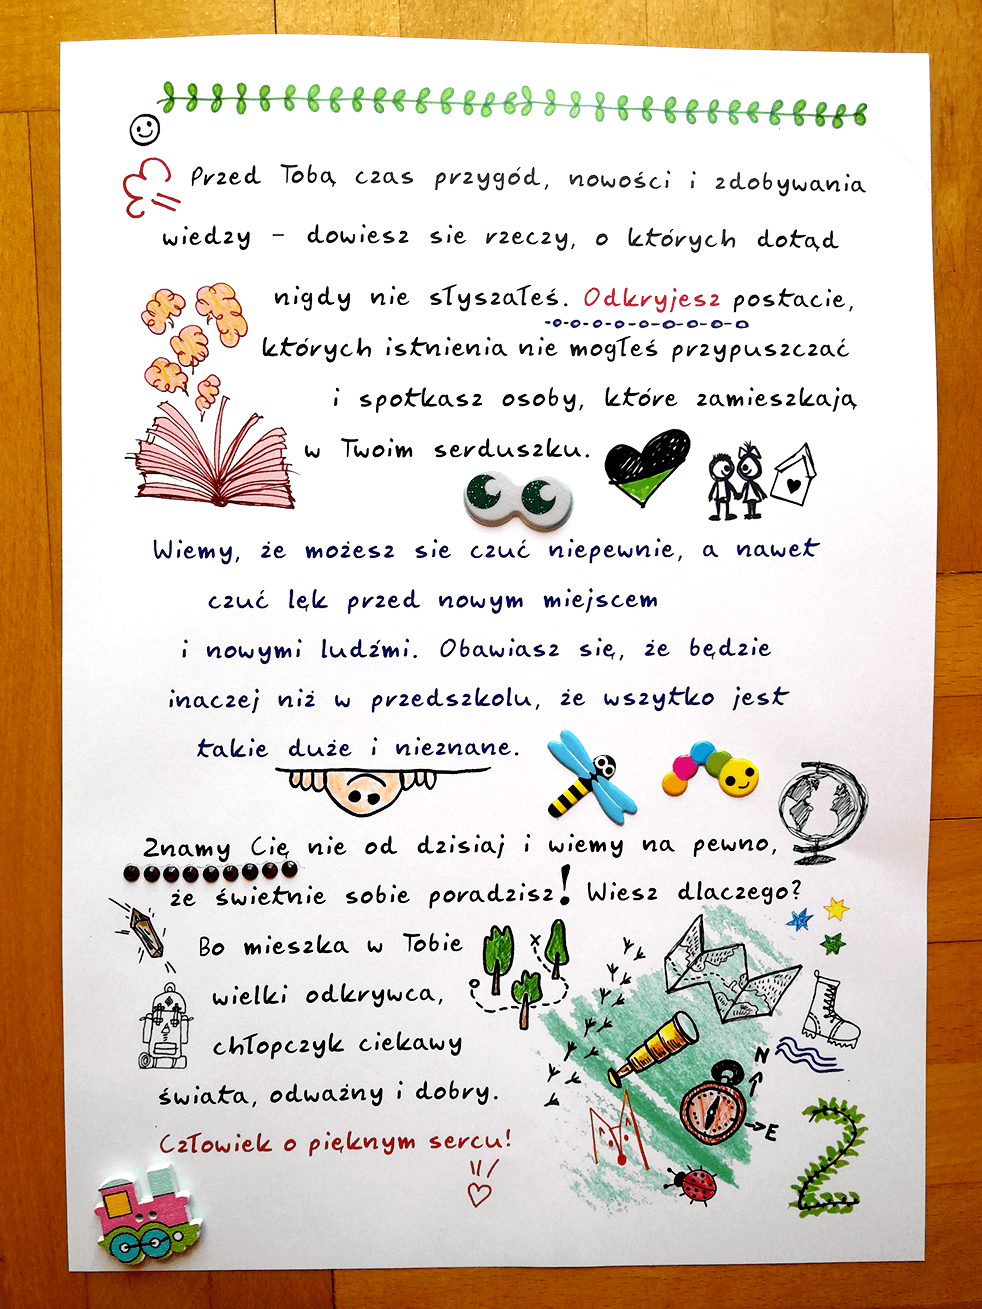 Przed Tobą czas przygód, nowości i zdobywania
wiedzy – dowiesz sie rzeczy, o których dotąd
nigdy nie słyszałeś. Odkryjesz postacie,
których istnienia nie mogłeś przypuszczać
i spotkasz osoby, które zamieszkają
w Twoim serduszku.
Wiemy, że możesz sie czuć niepewnie, a nawet
czuć lęk przed nowym miejscem
i nowymi ludźmi. Obawiasz się, że będzie
inaczej niż w przedszkolu, że wszytko jest
takie duże i nieznane.
Znamy Cię nie od dzisiaj i wiemy na pewno,
że świetnie sobie poradzisz! Wiesz dlaczego?
Bo mieszka w Tobie
wielki odkrywca,
chłopczyk ciekawy
świata, odważny i dobry.
Człowiek o pięknym sercu!
N
E
2